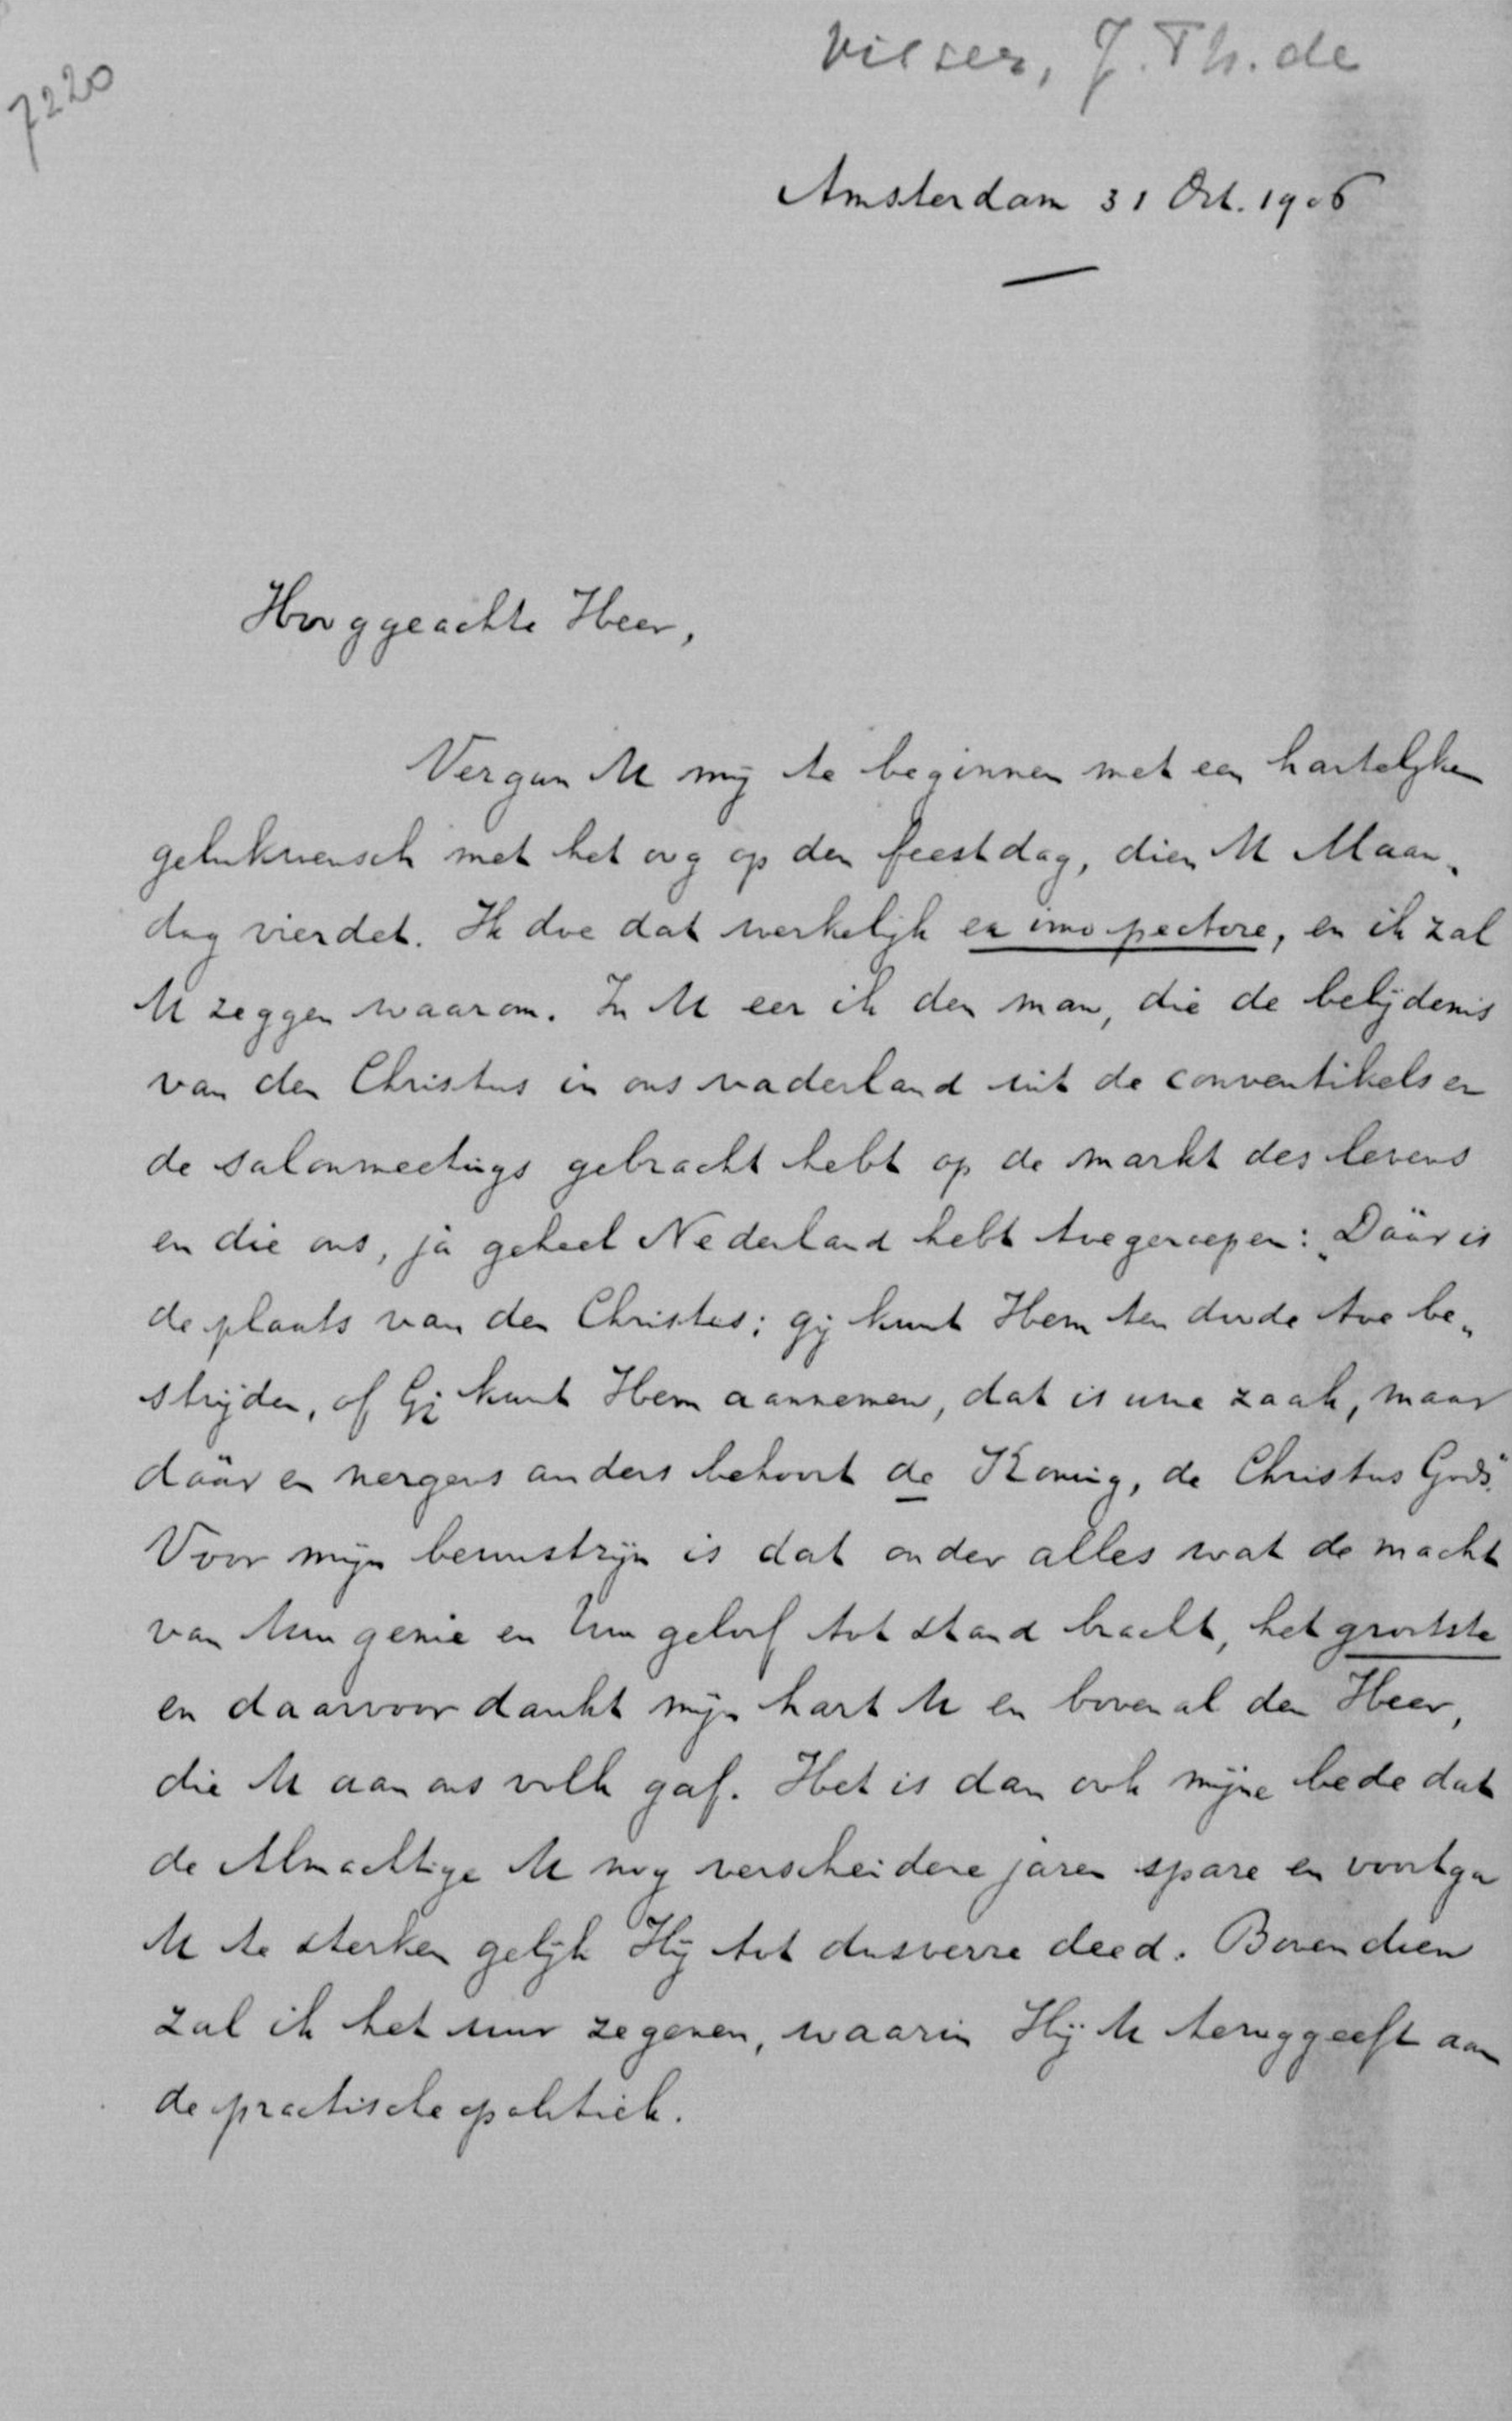 7220
Visser, J. Th. de
Amsterdam 31 Oct. 1906
Hooggeachte Heer,
Vergun U mij te beginnen met een hartelijken
gelukwensch met het oog op den feestdag, dien U Maan„
dag vierdet. Ik doe dat werkelijk ex imo pectore, en ik zal
U zeggen waarom. In U eer ik den man, die de belijdenis
van den Christus in ons vaderland uit de conventikels en
de salonmeetings gebracht hebt op de markt des levens
en die ons, ja geheel Nederland hebt toegeroepen: „Dáár is
de plaats van den Christus; gij kunt Hem ten doode toe be„
strijden, of Gij kunt Hem aannemen, dat is uwe zaak, maar
dáár en nergens anders behoort de Koning, de Christus Gods".
Voor mijn bewustzijn is dat onder alles wat de macht
van Uw genie en Uw geloof tot stand bracht, het grootste
en daarvoor dankt mijn hart U en bovenal den Heer,
die U aan ons volk gaf. Het is dan ook mijne bede dat
de Almachtige U nog verscheidene jaren spare en voortga
U te sterken gelijk Hij tot dusverre deed. Bovendien
zal ik het uur zegenen, waarin Hij U teruggeeft aan
de practische politiek.